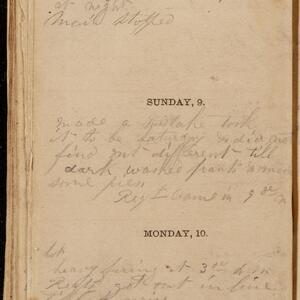 at night
Mail Stopped
SUNDAY, 9.
made a mistake took
it to be Saturday & did not
find out different till
dark washed pants
some pies
Regt came in 9
MONDAY, 10.
heavy firing at 3
Regt got out in line